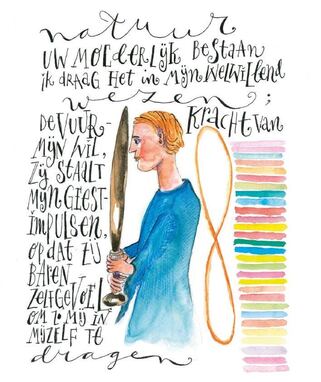 natuur
UW MOEDERLIJK BESTAAN
ik DRAAG HET in MIJN WELWILLEND
wezen;
DE VUUR-
KRACHT VAN
MIJN WIL,
ZIJ STAALT
MIJN GEEST-
IMPULSEN,
OPDAT ZIJ
BAREN
ZELFGEVOEL
OM ZO MIJ IN
MIJZELF TE
dragen